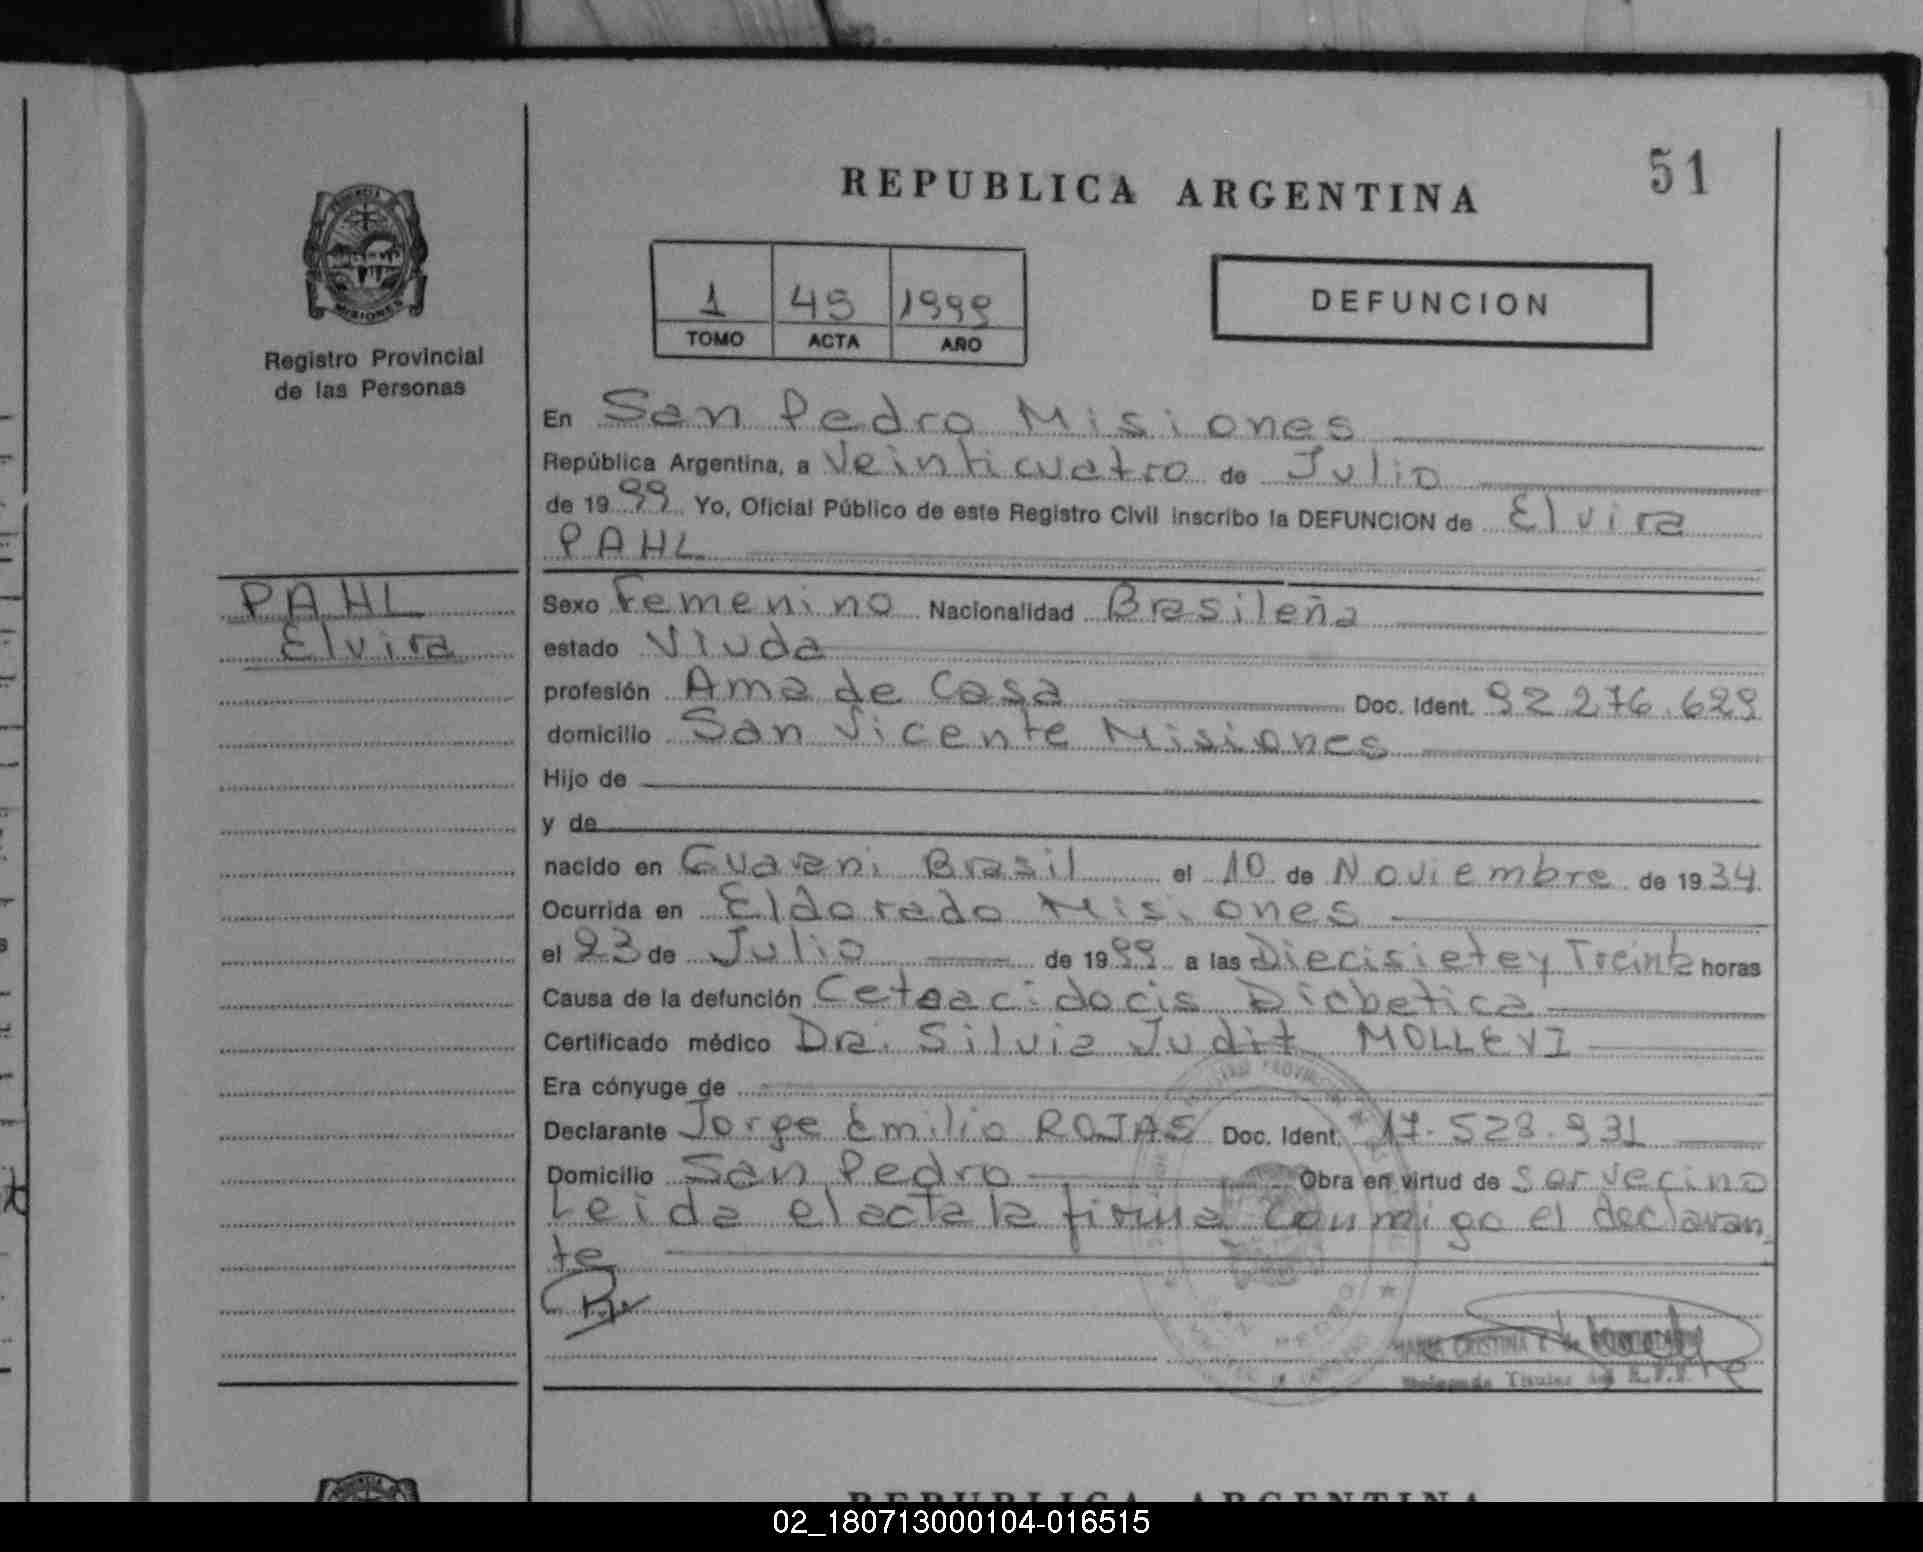 51
REPUBLICA ARGENTINA
PROVINCIA
MISIONES
Registro Provincial
de las Personas
1 49 1999
TOMO ACTA AÑO
DEFUNCION
En San Pedro Misiones
República Argentina, a Veinticuatro de Julio
de 1999 Yo, Oficial Público de este Registro Civil inscribo la DEFUNCION de Elvira
PAHL
PAHL
Elvira
Sexo Femenino Nacionalidad Brasileña
estado Viuda
profesión Ama de Casa Doc. Ident. 92 276.629
domicilio San Vicente Misiones
Hijo de
y de
nacido en Guarani Brasil el 10 de Noviembre de 1934
Ocurrida en Eldorado Misiones
el 23 de Julio de 1999 a las Diecisiete y Treinta horas
Causa de la defunción Cetoacidocis Diabetica
Certificado médico Dra. Silvia Judit MOLLEVI
Era cónyuge de
Declarante Jorge Emilio ROJAS Doc. Ident. 17.528.931
Domicilio San Pedro Obra en virtud de ser vecino
Leida el acta la firma conmigo el declaran
te
MARIA CRISTINA
Titular
REPUBLICA ARGENTINA
02_180713000104-016515